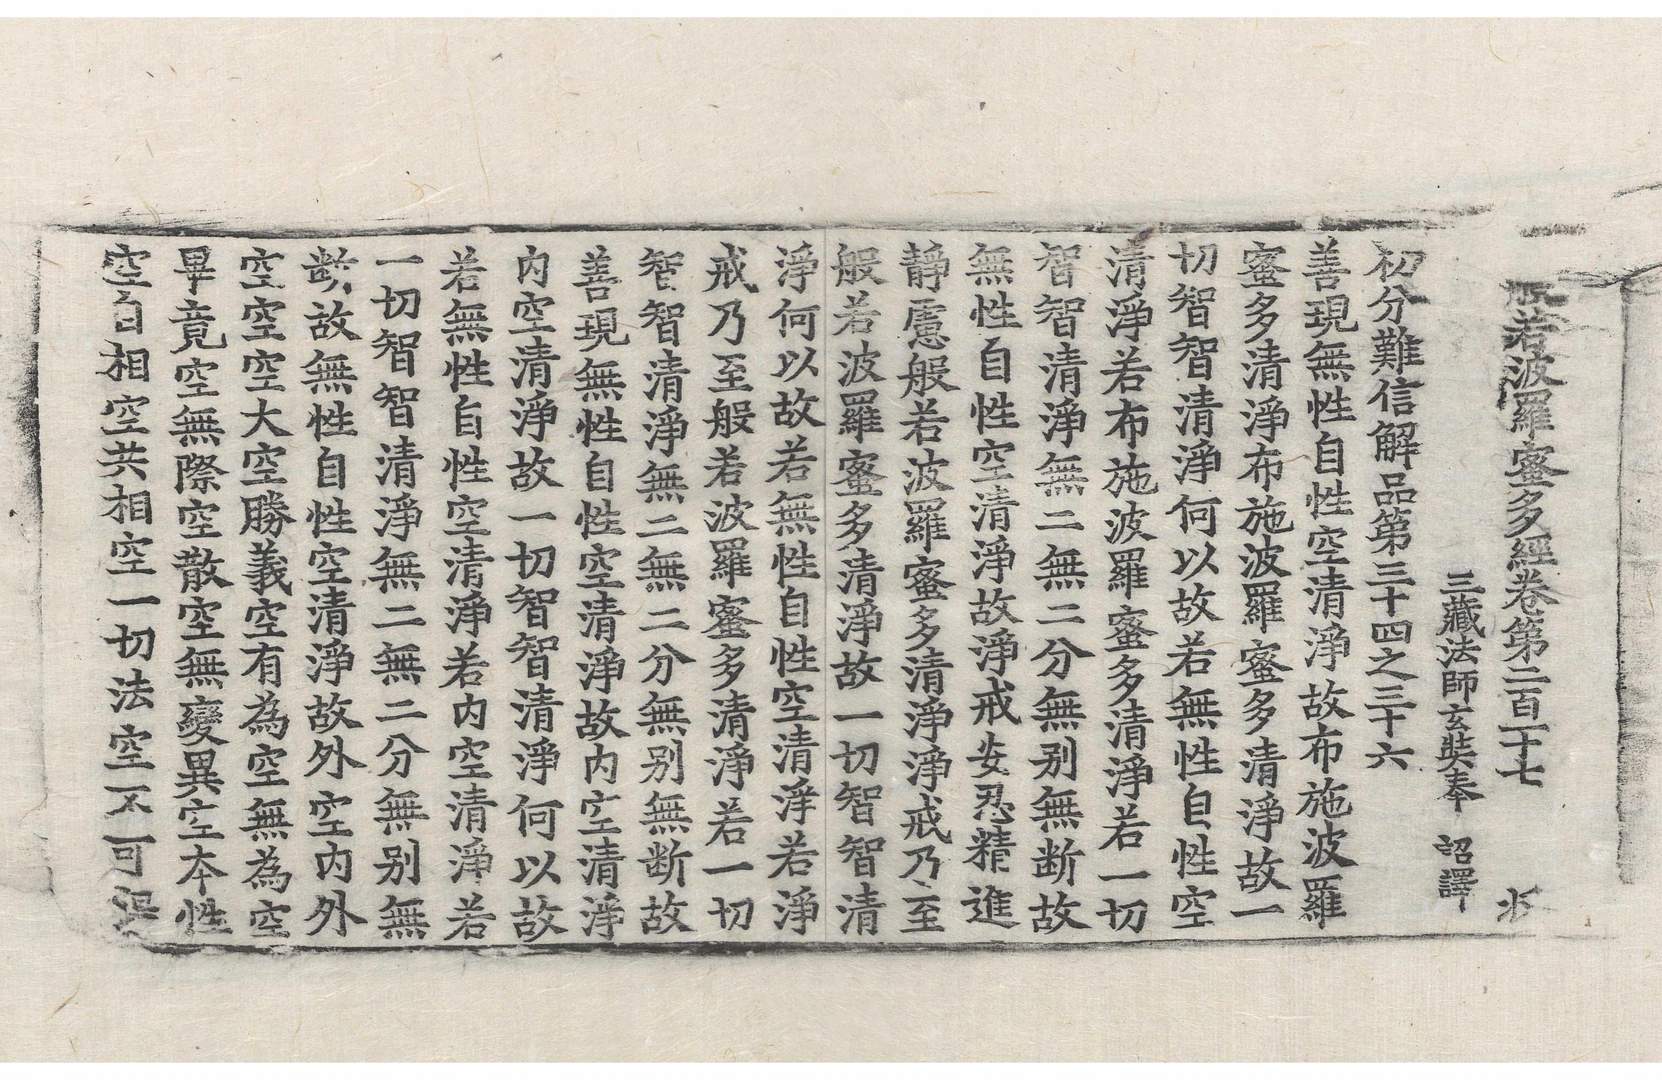 般若波羅蜜多經卷第二百二十七
三藏法師玄奘奉　詔譯
初分難信解品第三十四之三十六
善現無性自性空清淨故布施波羅
蜜多清淨布施波羅蜜多清淨故一
切智智清淨何以故若無性自性空
清淨若布施波羅蜜多清淨若一切
智智清淨無二無二分無別無断故
無性自性空清淨故淨戒安忍精進
靜慮般若波羅蜜多清淨淨戒乃至
般若波羅蜜多清淨故一切智智清
淨何以故若無性自性空清淨若淨
戒乃至般若波羅蜜多清淨若一切
智智清淨無二無二分無別無断故
善現無性自性空清淨故內空清淨
內空清淨故一切智智清淨何以故
若無性自性空清淨若內空清淨若
一切智智清淨無二無二分無別無
断故無性自性空清淨故外空內外
空空空大空勝義空有為空無為空
畢竟空無際空散空無變異空本性
空自相空共相空一切法空不可得